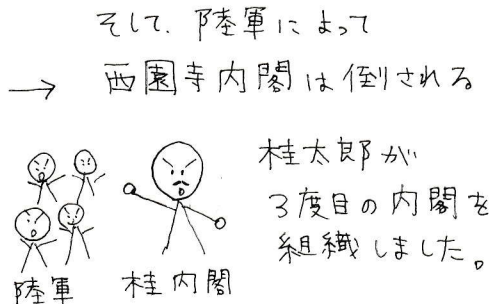 そして、陸軍によって
→ 西園寺内閣は倒される
桂太郎が
3度目の内閣を
組織しました。
陸軍
桂内閣